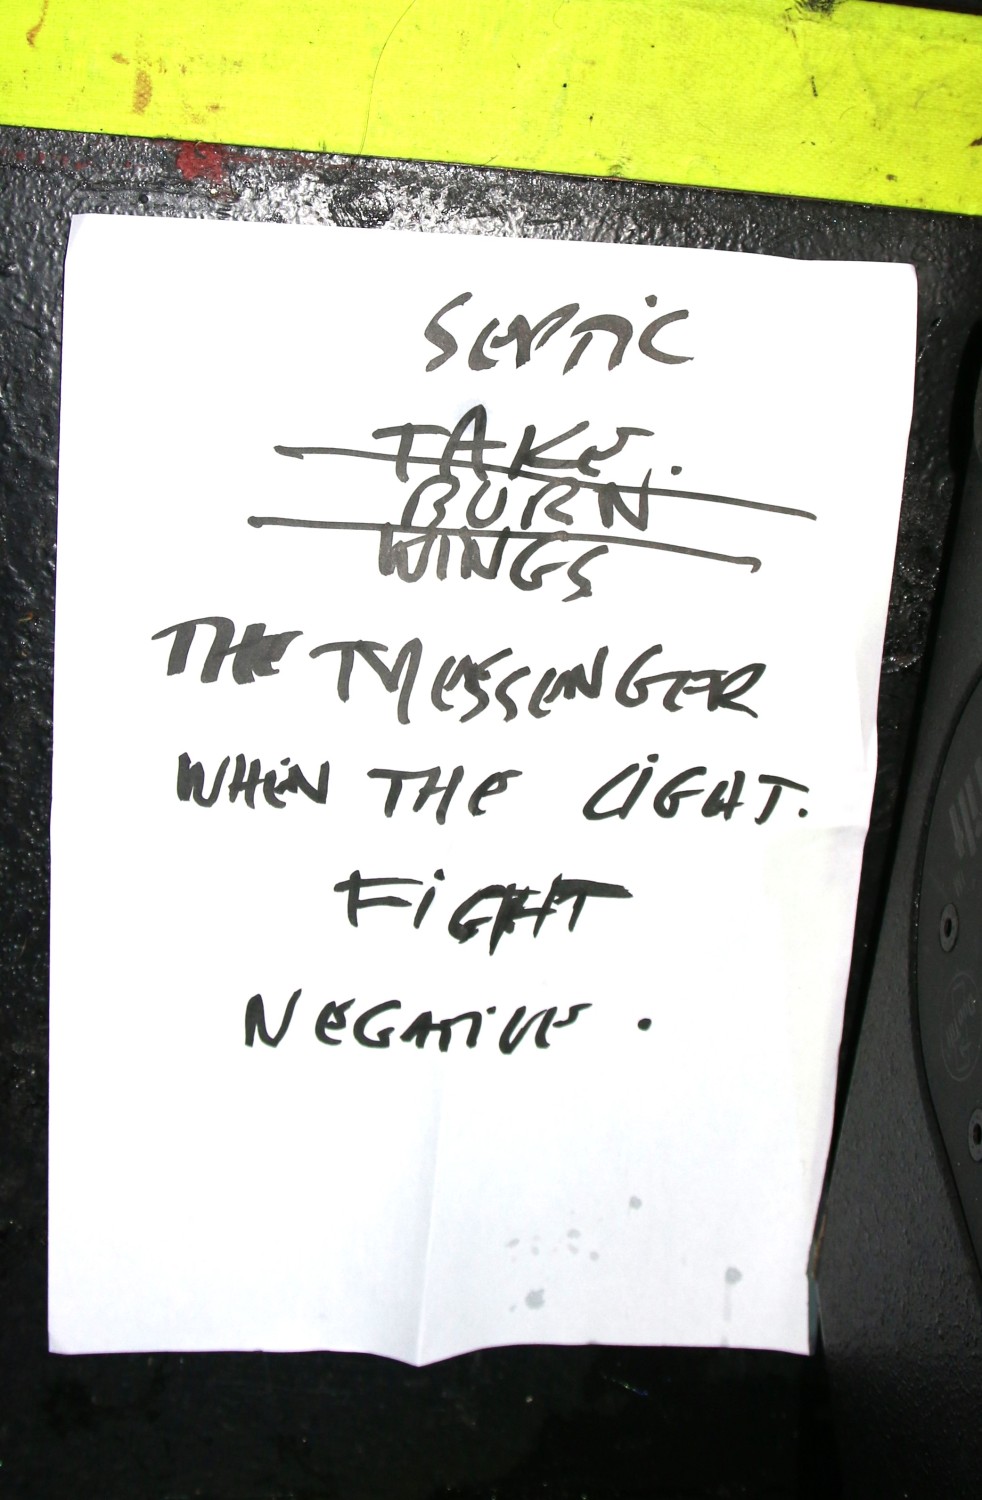 SEPTIC
TAKE.
BURN
WINGS
THE MESSENGER
WHEN THE LIGHT.
FIGHT
NEGATIVE.